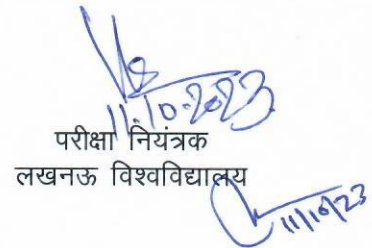 11.10.2023
परीक्षा नियंत्रक
लखनऊ विश्वविद्यालय
11/10/23